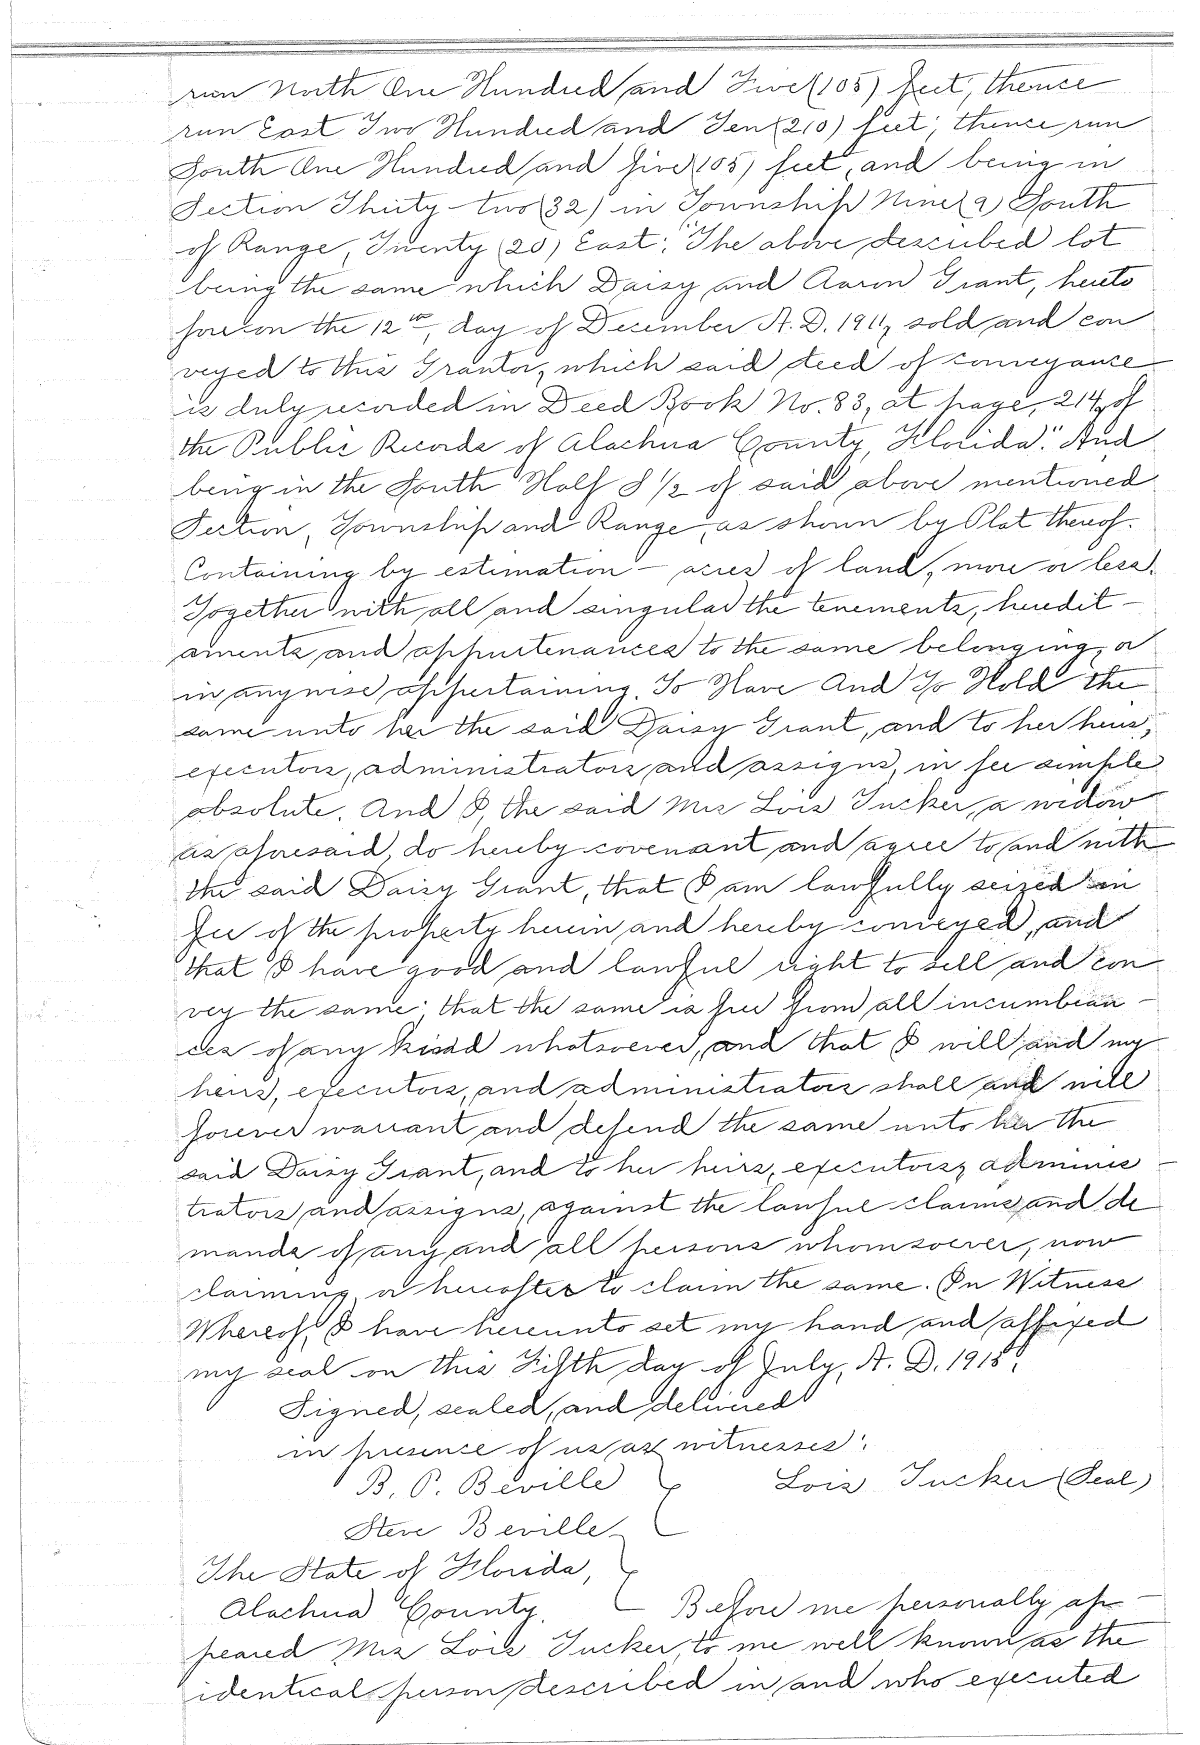 run North One Hundred and Five (105) feet; thence
run East Two Hundred and Ten (210) feet; thence run
South One Hundred and five (105) feet, and being in
Section Thirty-two (32) in Township Nine (9) South
of Range, Twenty (20) East: "The above described lot
being the same which Daisy and Aaron Grant, hereto
fore on the 12th, day of December A. D. 1911, sold and con
veyed to this Grantor, which said deed of conveyance
is duly recorded in Deed Book No. 83, at page, 214, of
the Public Records of Alachua County, Florida." And
being in the South Half S 1/2 of said above mentioned
Section, Township and Range, as shown by Plat thereof.
Containing by estimation - acres of land, more or less.
Together with all and singular the tenements, heredit-
aments and appurtenances to the same belonging, or
in anywise appertaining. To Have And To Hold the
same unto her the said Daisy Grant, and to her heirs,
executors, administrators and assigns, in fee simple
absolute. And I, the said Mrs Lois Tucker, a widow
as aforesaid, do hereby covenant and agree to and with
the said Daisy Grant, that I am lawfully seized in
fee of the property herein and hereby conveyed, and
that I have good and lawful right to sell and con
vey the same; that the same is free from all incumbran-
ces of any kind whatsoever, and that I will and my
heirs, executors, and administrators shall and will
forever warrant and defend the same unto her the
said Daisy Grant, and to her heirs, executors, adminis-
trators and assigns, against the lawful claims and de
mands of any and all persons whomsoever, now
claiming, or hereafter to claim the same. In Witness
Whereof, I have hereunto set my hand and affixed
my seal on this Fifth day of July, A. D. 1915.
Signed, sealed, and delivered
in presence of us as witnesses:
B. P. Beville Lois Tucker (Seal)
Steve Beville
The State of Florida,
Alachua County. Before me personally ap-
peared Mrs Lois Tucker, to me well known as the
identical person described in and who executed